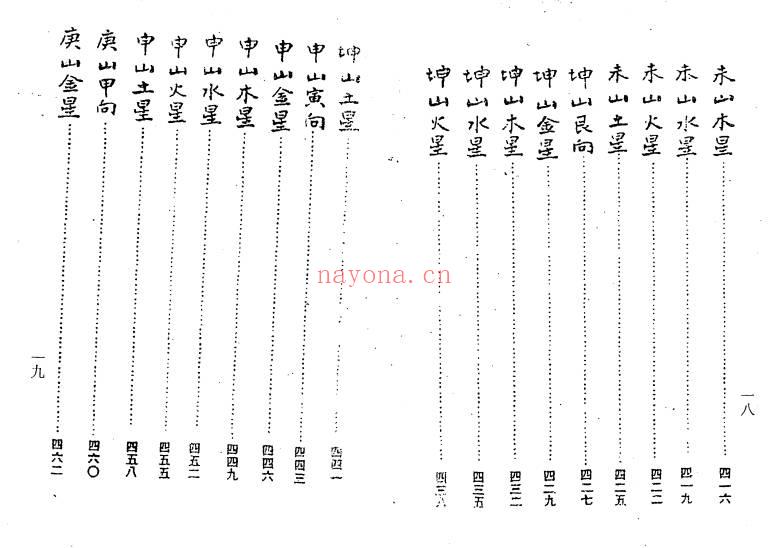 未山木星……四一六
未山水星……四一九
未山火星……四二二
未山土星……四二五
坤山艮向……四二七
坤山金星……四二九
坤山木星……四三二
坤山水星……四三五
坤山火星……四三八
一八
坤山土星……四四一
申山寅向……四四三
申山金星……四四六
申山木星……四四九
申山水星……四五二
申山火星……四五五
申山土星……四五八
庚山甲向……四六〇
庚山金星……四六二
一九
nayona.cn